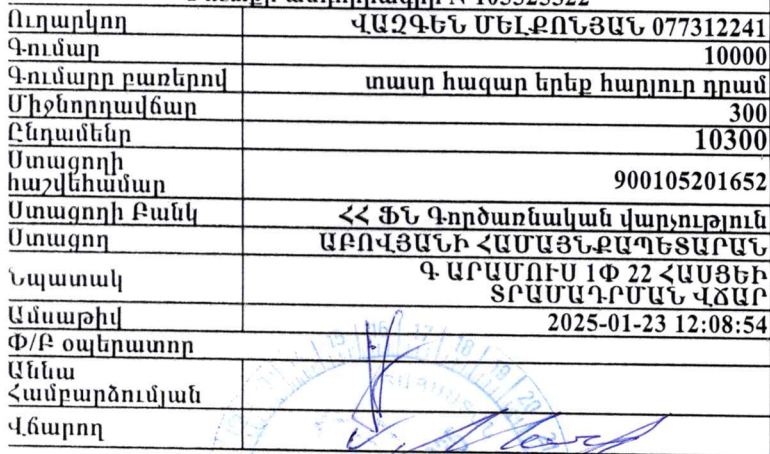 Ուղարկող ՎԱԶԳԵՆ ՄԵԼՔՈՆՅԱՆ 077312241
Գումար 10000
Գումարր բառերով տասր հազար երեք հարյուր դրամ
Միջնորդավճար 300
Ընդամենր 10300
Ստացողի
հաշվեհամար 900105201652
Ստացողի Բանկ ՀՀ ՖՆ Գործառնական վարչություն
Ստացող ԱԲՈՎՅԱՆԻ ՀԱՄԱՅՆՔԱՊԵՏԱՐԱՆ
Նպատակ Գ ԱՐԱՄՈՒՍ 1Փ 22 ՀԱՍՑԵԻ
ՏՐԱՄԱԴՐՄԱՆ ՎՃԱՐ
Ամսաթիվ 2025-01-23 12:08:54
Փ/Բ օպերատոր
Աննա
Համբարձումյան
Վճարող
15 16 17 18 19 20